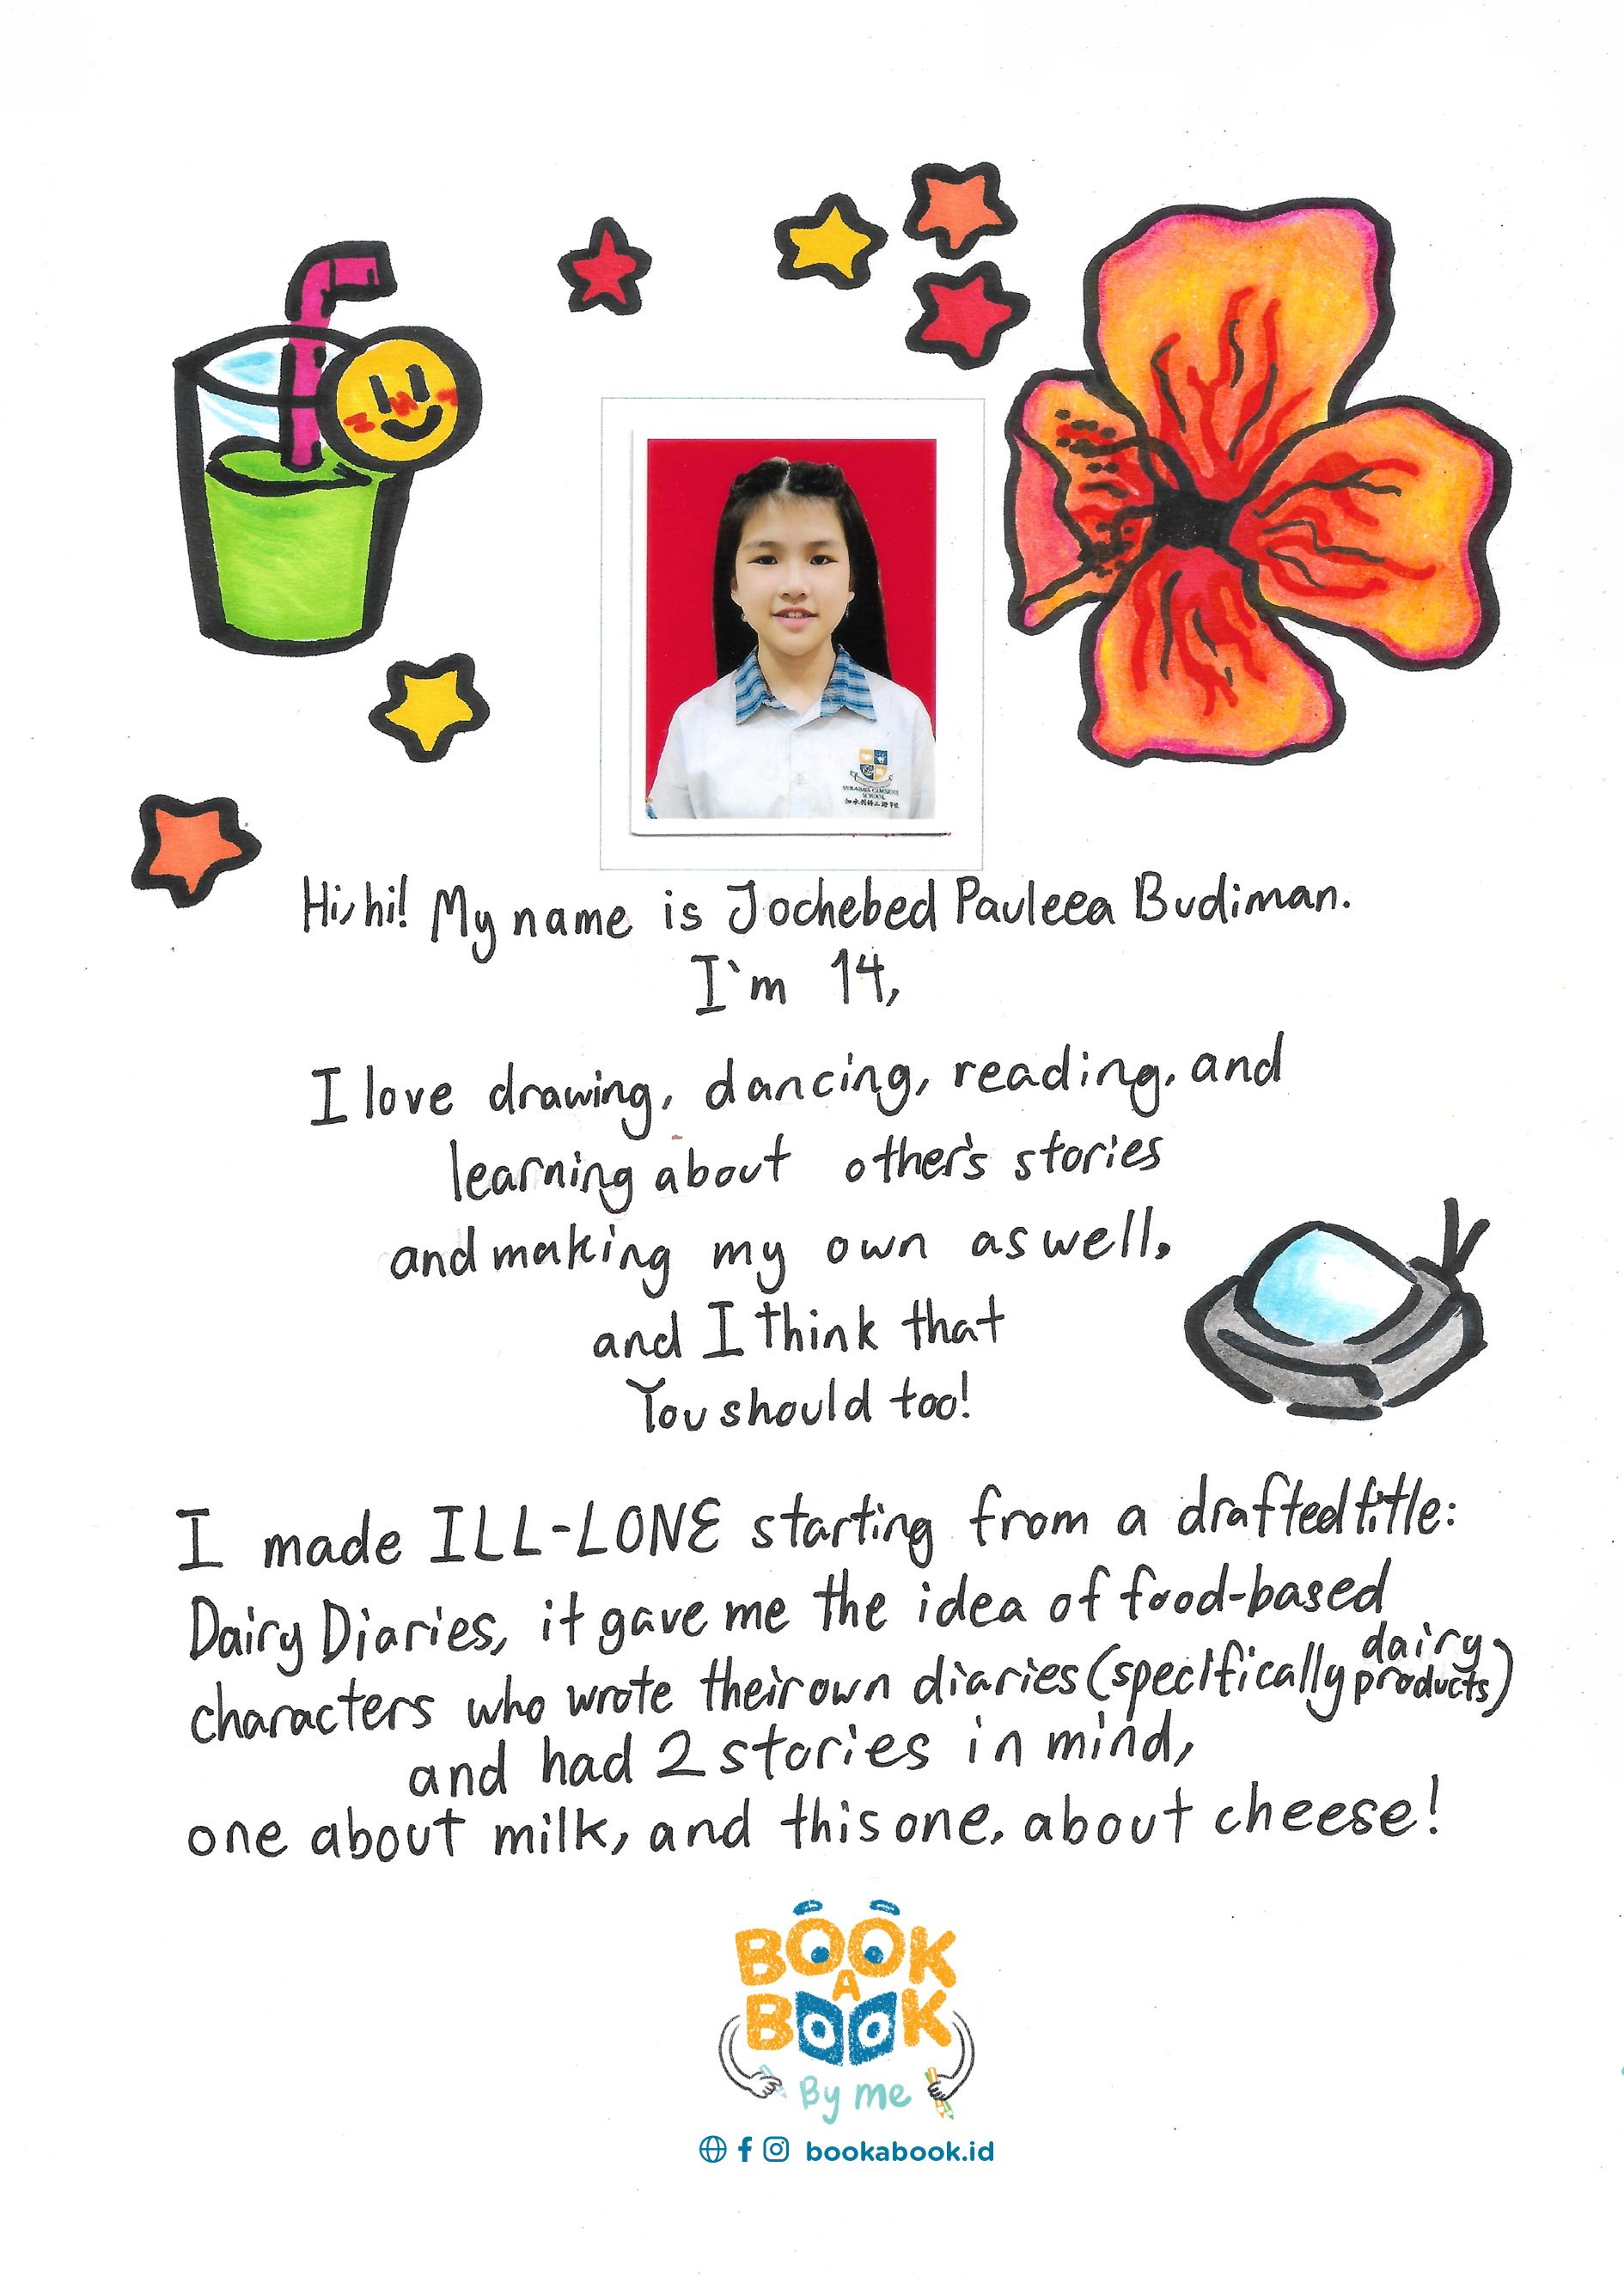 SCHOOL
Hi, hi! My name is Jochebed Pauleea Budiman.
I'm 14,
I love drawing, dancing, reading, and
learning about other's stories
and making my own as well,
and I think that
You should too!
I made ILL-LONE starting from a drafted title:
Dairy Diaries, it gave me the idea of food-based
characters who wrote their own diaries (specifically dairy products)
and had 2 stories in mind,
one about milk, and this one, about cheese!
BOOK
A
BOOK
By me
bookabook.id